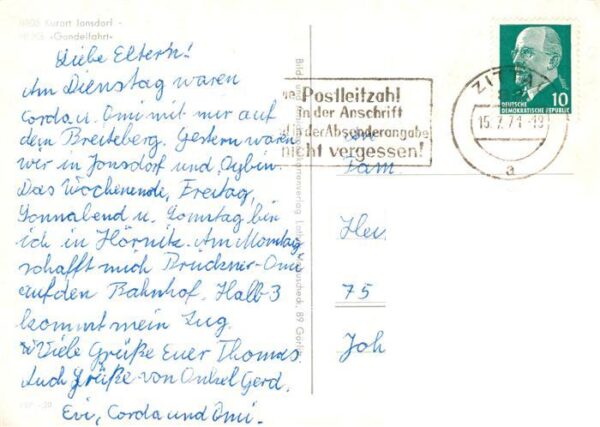 Kurort Jonsdorf -
»Gondelfahrt«
Liebe Eltern!
Am Dienstag waren
Corda u. Omi mit mir auf
dem Breiteberg. Gestern waren
wir in Jonsdorf und Oybin.
Das Wochenende, Freitag,
Sonnabend u. Sonntag bin
ich in Hörnitz. Am Montag
schafft mich Brückner-Omi
auf den Bahnhof. Halb 3
kommt mein Zug.
Viele Grüße Euer Thomas.
Auch Grüße von Onkel Gerd.
Evi, Corda und Omi.
Bild und
89 Görl
Postleitzahl
in der Anschrift
in der Absenderangabe
nicht vergessen!
ZITTAU
15.7.71
a
10
DEUTSCHE
DEMOKRATISCHE REPUBLIK
Fam
75
Joh